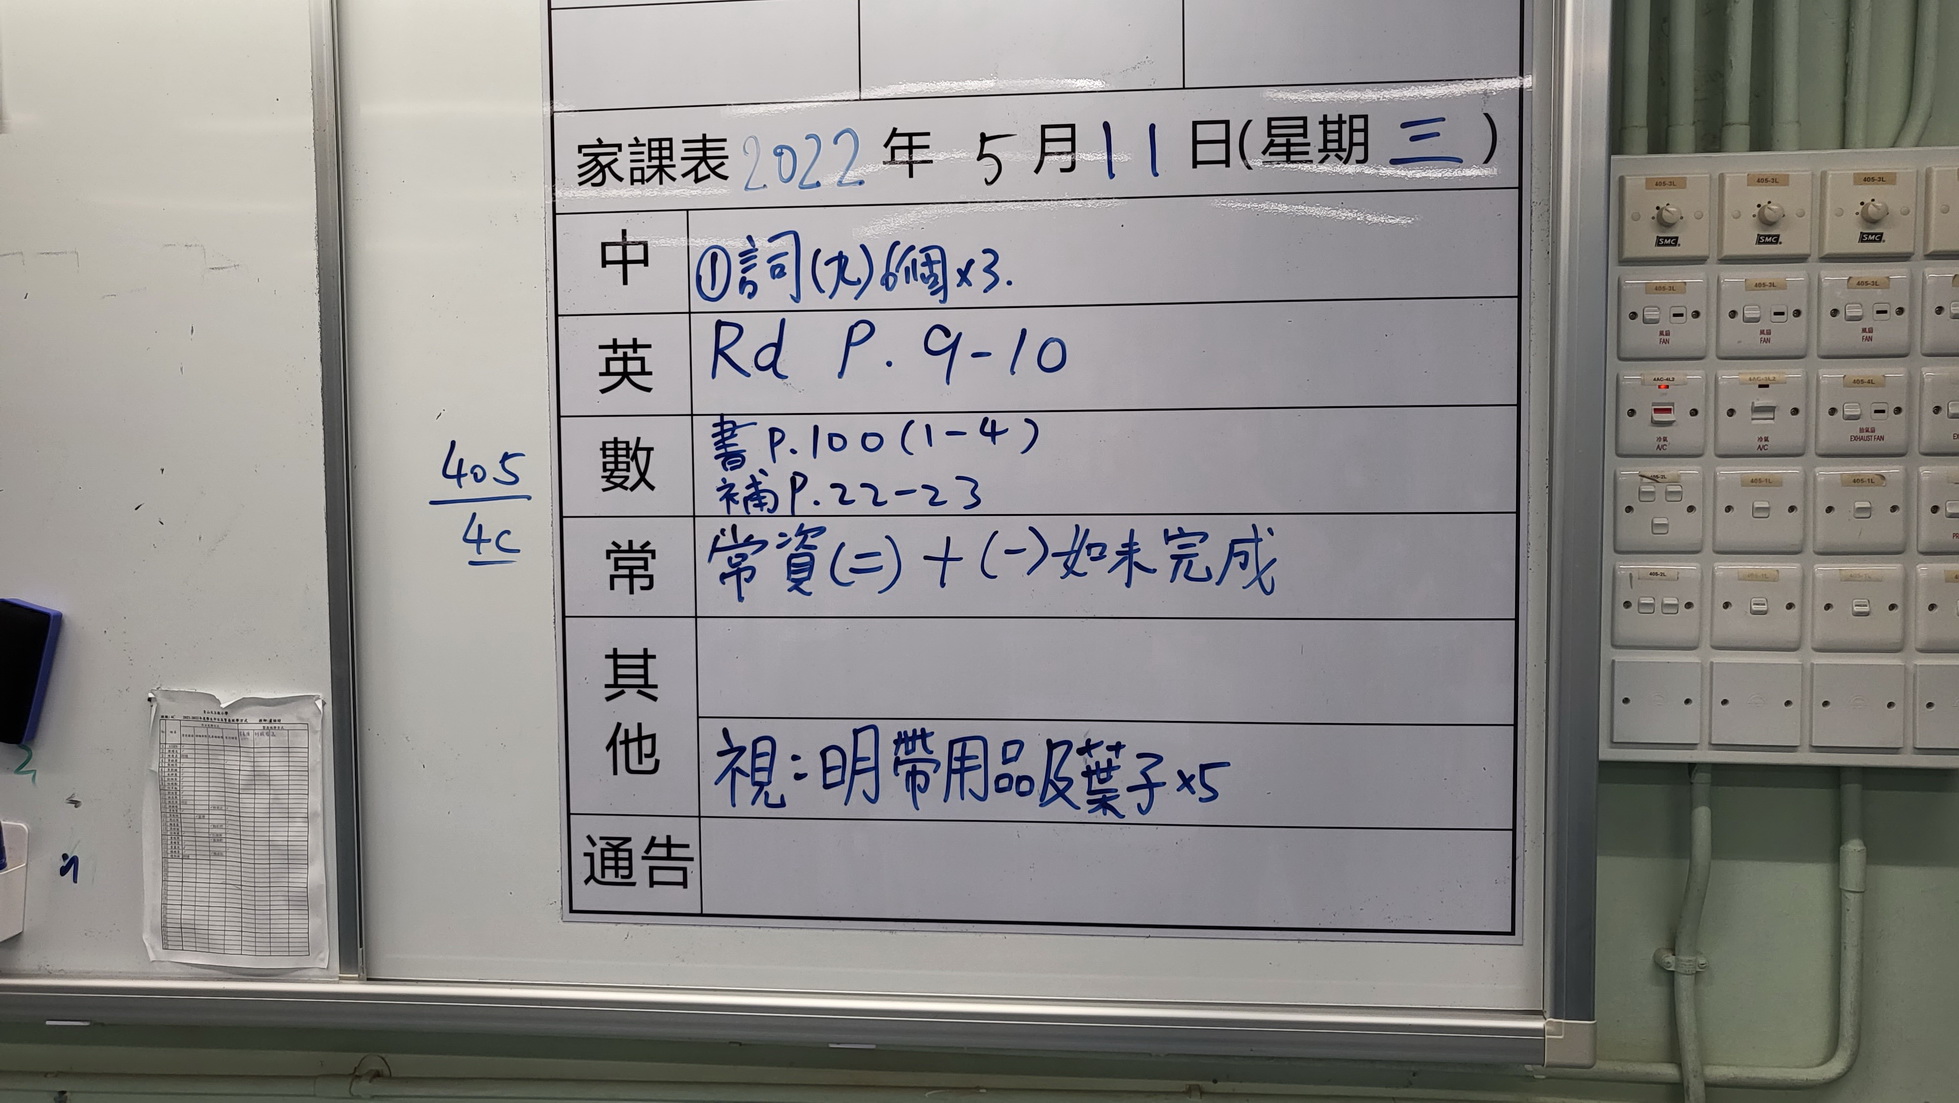 家課表 2022 年 5 月 11 日(星期 三 )
中
①詞(九)6個×3.
英
Rd P. 9-10
數
書P.100(1-4)
補P.22-23
405
4C
常
常資(二)+(一)如未完成
其他
視:明帶用品及葉子×5
通告
405-3L 405-3L 405-3L
SMC SMC SMC
405-3L 405-3L 405-3L
風扇 風扇 風扇
FAN FAN FAN
4AC-4L2 4AC-3L2 405-4L
冷氣 冷氣 抽氣扇
A/C A/C EXHAUST FAN
405-1L 405-1L